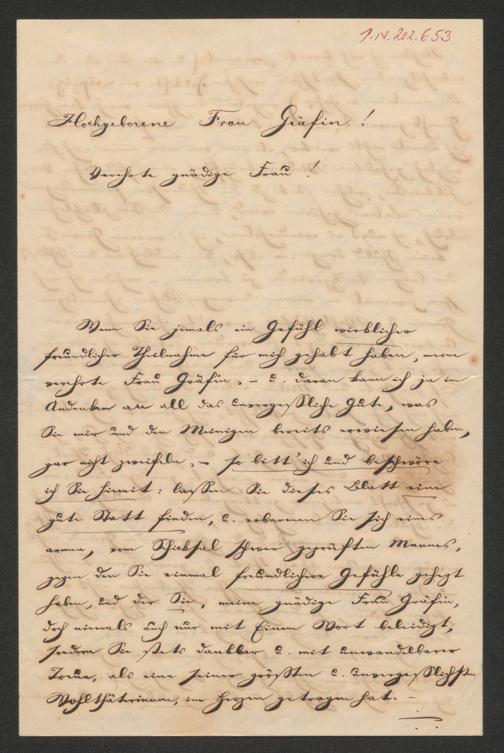 I.N. 202.653
Hochgeborene Frau Gräfin!
Verehrte gnädige Frau!
Wenn Sie jemals ein Gefühl wirklicher
freundlicher Theilnahme für mich gehabt haben, meine
verehrte Frau Gräfin, – u. daran kann ich ja im
Andenken an all das unvergeßliche Gute, was
Sie mir und den Meinigen bereits erwiesen haben,
gar nicht zweifeln, – so bitt' ich und beschwöre
ich Sie hiemit: lassen Sie dieses Blatt eine
gute Statt finden, u. erbarmen Sie sich eines
armen, vom Schicksal schwer geprüften Mannes,
gegen den Sie einmal freundlichere Gefühle gehegt
haben, und der Sie, meine gnädige Frau Gräfin,
doch niemals auch nur mit Einem Wort beleidigt,
sondern Sie stets dankbar u. mit unwandelbarer
Treue, als eine seiner größten u. unvergeßlichsten
Wohlthäterinen, im Herzen getragen hat. –